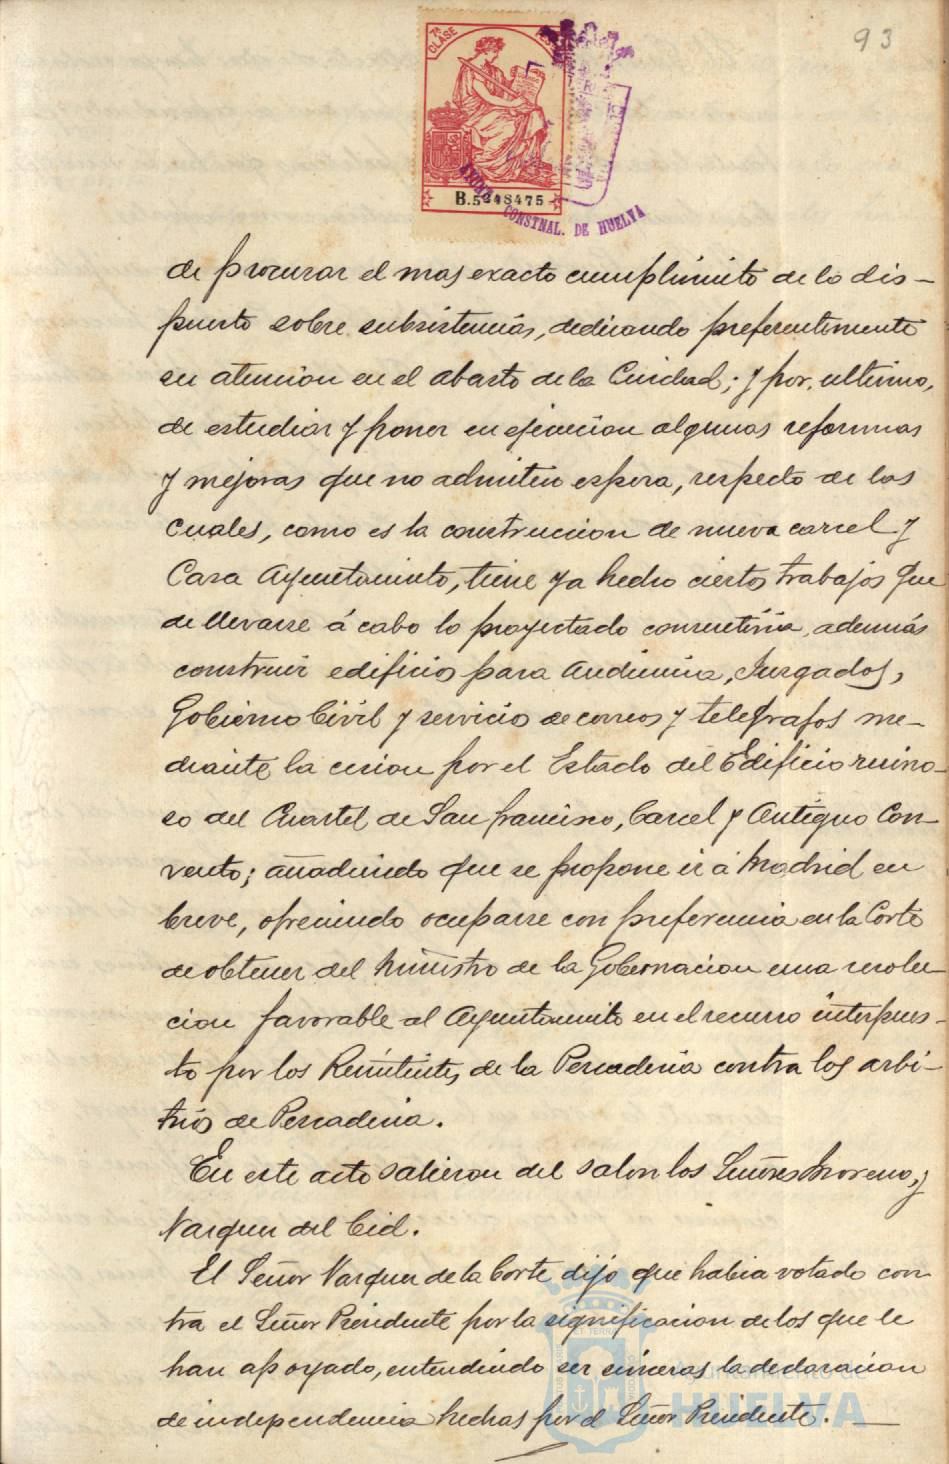 93
7ª CLASE
B.5248475
CONSTNAL. DE HUELVA
de procurar el mas exacto cumplimito de lo dis-
puesto sobre subsistencias, dedicando preferentemente
su atencion en el abasto de la Ciudad; y por ultimo,
de estudiar y poner en ejecucion algunas reformas
y mejoras que no admiten espera, respecto de las
cuales, como es la construccion de nueva carcel y
Casa Ayuntamiento, tiene ya hecho ciertos trabajos que
de llevarse á cabo lo proyectado consentiria, además
construir edificios para Audiencia, Juzgados,
Gobierno Civil y servicio de correos y telegrafos me-
diante la cesion por el Estado del Edificio ruino-
so del Cuartel de San francisco, Carcel y Antiguo Con-
vento; añadiendo que se propone ir á Madrid en
breve, ofreciendo ocuparse con preferencia en la Corte
de obtener del Ministro de la Gobernacion una resolu-
cion favorable al Ayuntamiento en el recurso interpues-
to por los Remitentes de la Pescaderia contra los arbi-
trios de Pescaderia.
En este acto salieron del salon los Señores Moreno, y
Vazquez del Cid.
El Señor Vazquez de la Corte dijo que habia votado con
tra el Señor Presidente por la significacion de los que le
han apoyado, entendiendo ser sinceras la declaracion
de independencia hechas por el Señor Presidente.
Ayuntamiento de
HUELVA